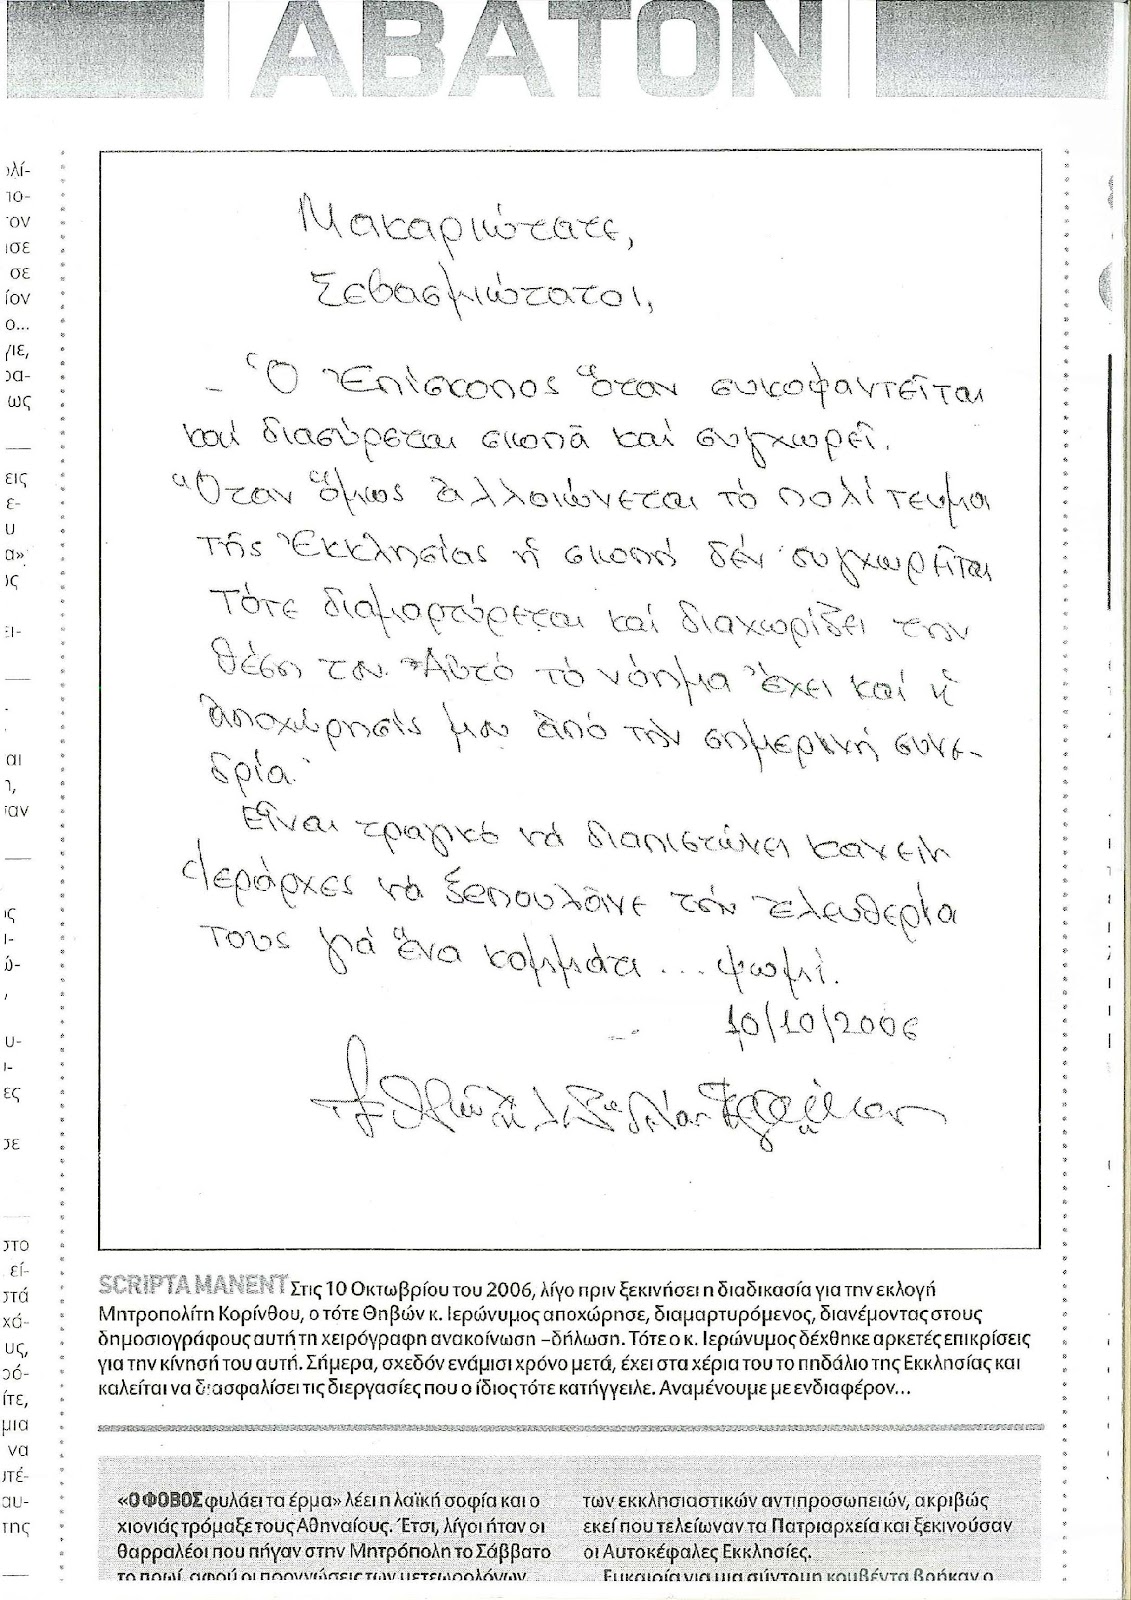 ΑΒΑΤΟΝ
Μακαριώτατε,
Σεβασμιώτατοι,
– Ὁ Ἐπίσκοπος ὅταν συκοφαντεῖται
καί διασύρεται σιωπᾶ καί συγχωρεῖ.
Ὅταν ὅμως ἀλλοιώνεται τό πολίτευμα
τῆς Ἐκκλησίας ἡ σιωπή δέν συγχωρεῖται
Τότε διαμαρτύρεται καί διαχωρίζει την
θέση του. Αὐτό τό νόημα ἔχει καί ἡ
ἀποχώρησίς μου ἀπό τήν σημερινή συνε-
δρία.
Εἶναι τραγικό νά διαπιστώνει κανείς
Ἱεράρχες νά ξεπουλᾶνε τήν ἐλευθερία
τους γιά ἕνα κομμάτι ... ψωμί.
10/10/2006
SCRIPTA MANENT Στις 10 Οκτωβρίου του 2006, λίγο πριν ξεκινήσει η διαδικασία για την εκλογή
Μητροπολίτη Κορίνθου, ο τότε Θηβών κ. Ιερώνυμος αποχώρησε, διαμαρτυρόμενος, διανέμοντας στους
δημοσιογράφους αυτή τη χειρόγραφη ανακοίνωση –δήλωση. Τότε ο κ. Ιερώνυμος δέχθηκε αρκετές επικρίσεις
για την κίνησή του αυτή. Σήμερα, σχεδόν ενάμισι χρόνο μετά, έχει στα χέρια του το πηδάλιο της Εκκλησίας και
καλείται να διασφαλίσει τις διεργασίες που ο ίδιος τότε κατήγγειλε. Αναμένουμε με ενδιαφέρον...
«Ο ΦΟΒΟΣ φυλάει τα έρμα» λέει η λαϊκή σοφία και ο
χιονιάς τρόμαξε τους Αθηναίους. Έτσι, λίγοι ήταν οι
θαρραλέοι που πήγαν στην Μητρόπολη το Σάββατο
το πρωί, αφού οι προγνώσεις των μετεωρολόγων
των εκκλησιαστικών αντιπροσωπειών, ακριβώς
εκεί που τελείωναν τα Πατριαρχεία και ξεκινούσαν
οι Αυτοκέφαλες Εκκλησίες.
Ευκαιρία για μια σύντομη κουβέντα βρήκαν ο